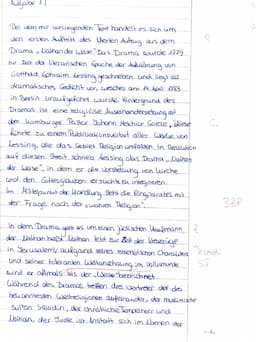 Aufgabe 1)
Bei dem mir vorliegenden Text handelt es sich um
den ersten Auftritt des vierten Aufzug aus dem
Drama „Nathan der Weise". Das Drama wurde 1779
zur Zeit der literarischen Epoche der Aufklärung von
Gotthold Ephraim Lessing geschrieben und liegt als
dramatisches Gedicht vor, welches am 14. April 1783
in Berlin uraufgeführt wurde. Hintergrund des
Dramas ist eine religiöse Auseinandersetzung mit
dem Hamburger Pastor Johann Melchior Goeze,
führte zu einem Publikationsverbot aller Werke von
Lessing, die das Gebiet Religion umfassten. In Reaktion
auf diesen Streit schrieb Lessing das Drama „Nathan
der Weise", in dem er die Vorstellung von Kirche
und den Gottesglauben versuchte zu integrieren.
Im Mittelpunkt der Handlung steht die Ringparabel mit
der Frage nach der „wahren Religion".
In dem Drama geht es um einen jüdischen Kaufmann,
der Nathan heißt. Nathan lebt zur Zeit der Kreuzzüge
in Jerusalem. Aufgrund seines Charakters
und seiner toleranten Weltanschauung im Volksmunde
wird er oftmals als der „Weise" bezeichnet.
Während des Dramas treffen die Vertreter der drei
bekanntesten Weltreligionen aufeinander, der muslimische
Sultan Saladin, der christliche Tempelherr und
Nathan, der Jude ist. Anstatt sich im Namen der